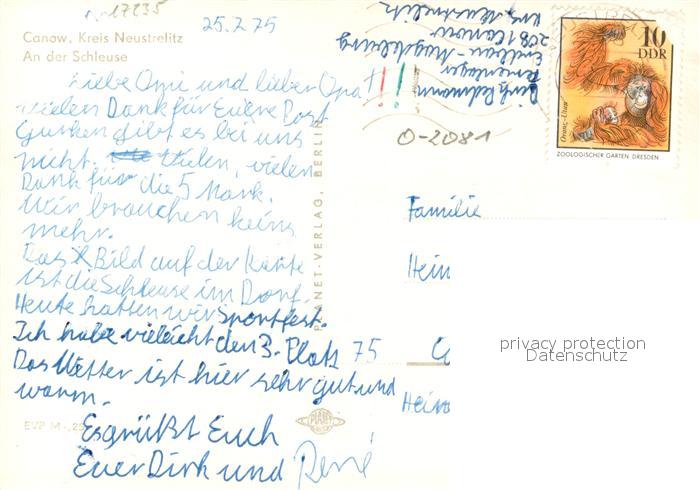 17235
25.7.75
Canow, Kreis Neustrelitz
An der Schleuse
Liebe Omi und lieber Opa!!!
vielen Dank für Euere Post
Gurken gibt es bei uns
nicht. vielen
Dank für die 5 Mark.
Wir brauchen keine
mehr.
Das Bild auf der Karte
ist die Schleuse im Dorf.
Heute hatten wir Sportfest.
Ich habe vieleicht den 3. Platz
Das Wetter ist hier sehr gut und
warm.
Es grüßt Euch
Euer Dirk und René
EVP M -,25
PLANET-VERLAG, BERLIN
PLANET
75
Dirk
Ferienlager
Magdeburg
2081 Canow
Krs. Neustrelitz
O-2081
10
DDR
Orang-Utan
ZOOLOGISCHER GARTEN DRESDEN
Familie
Hein
privacy protection
Datenschutz